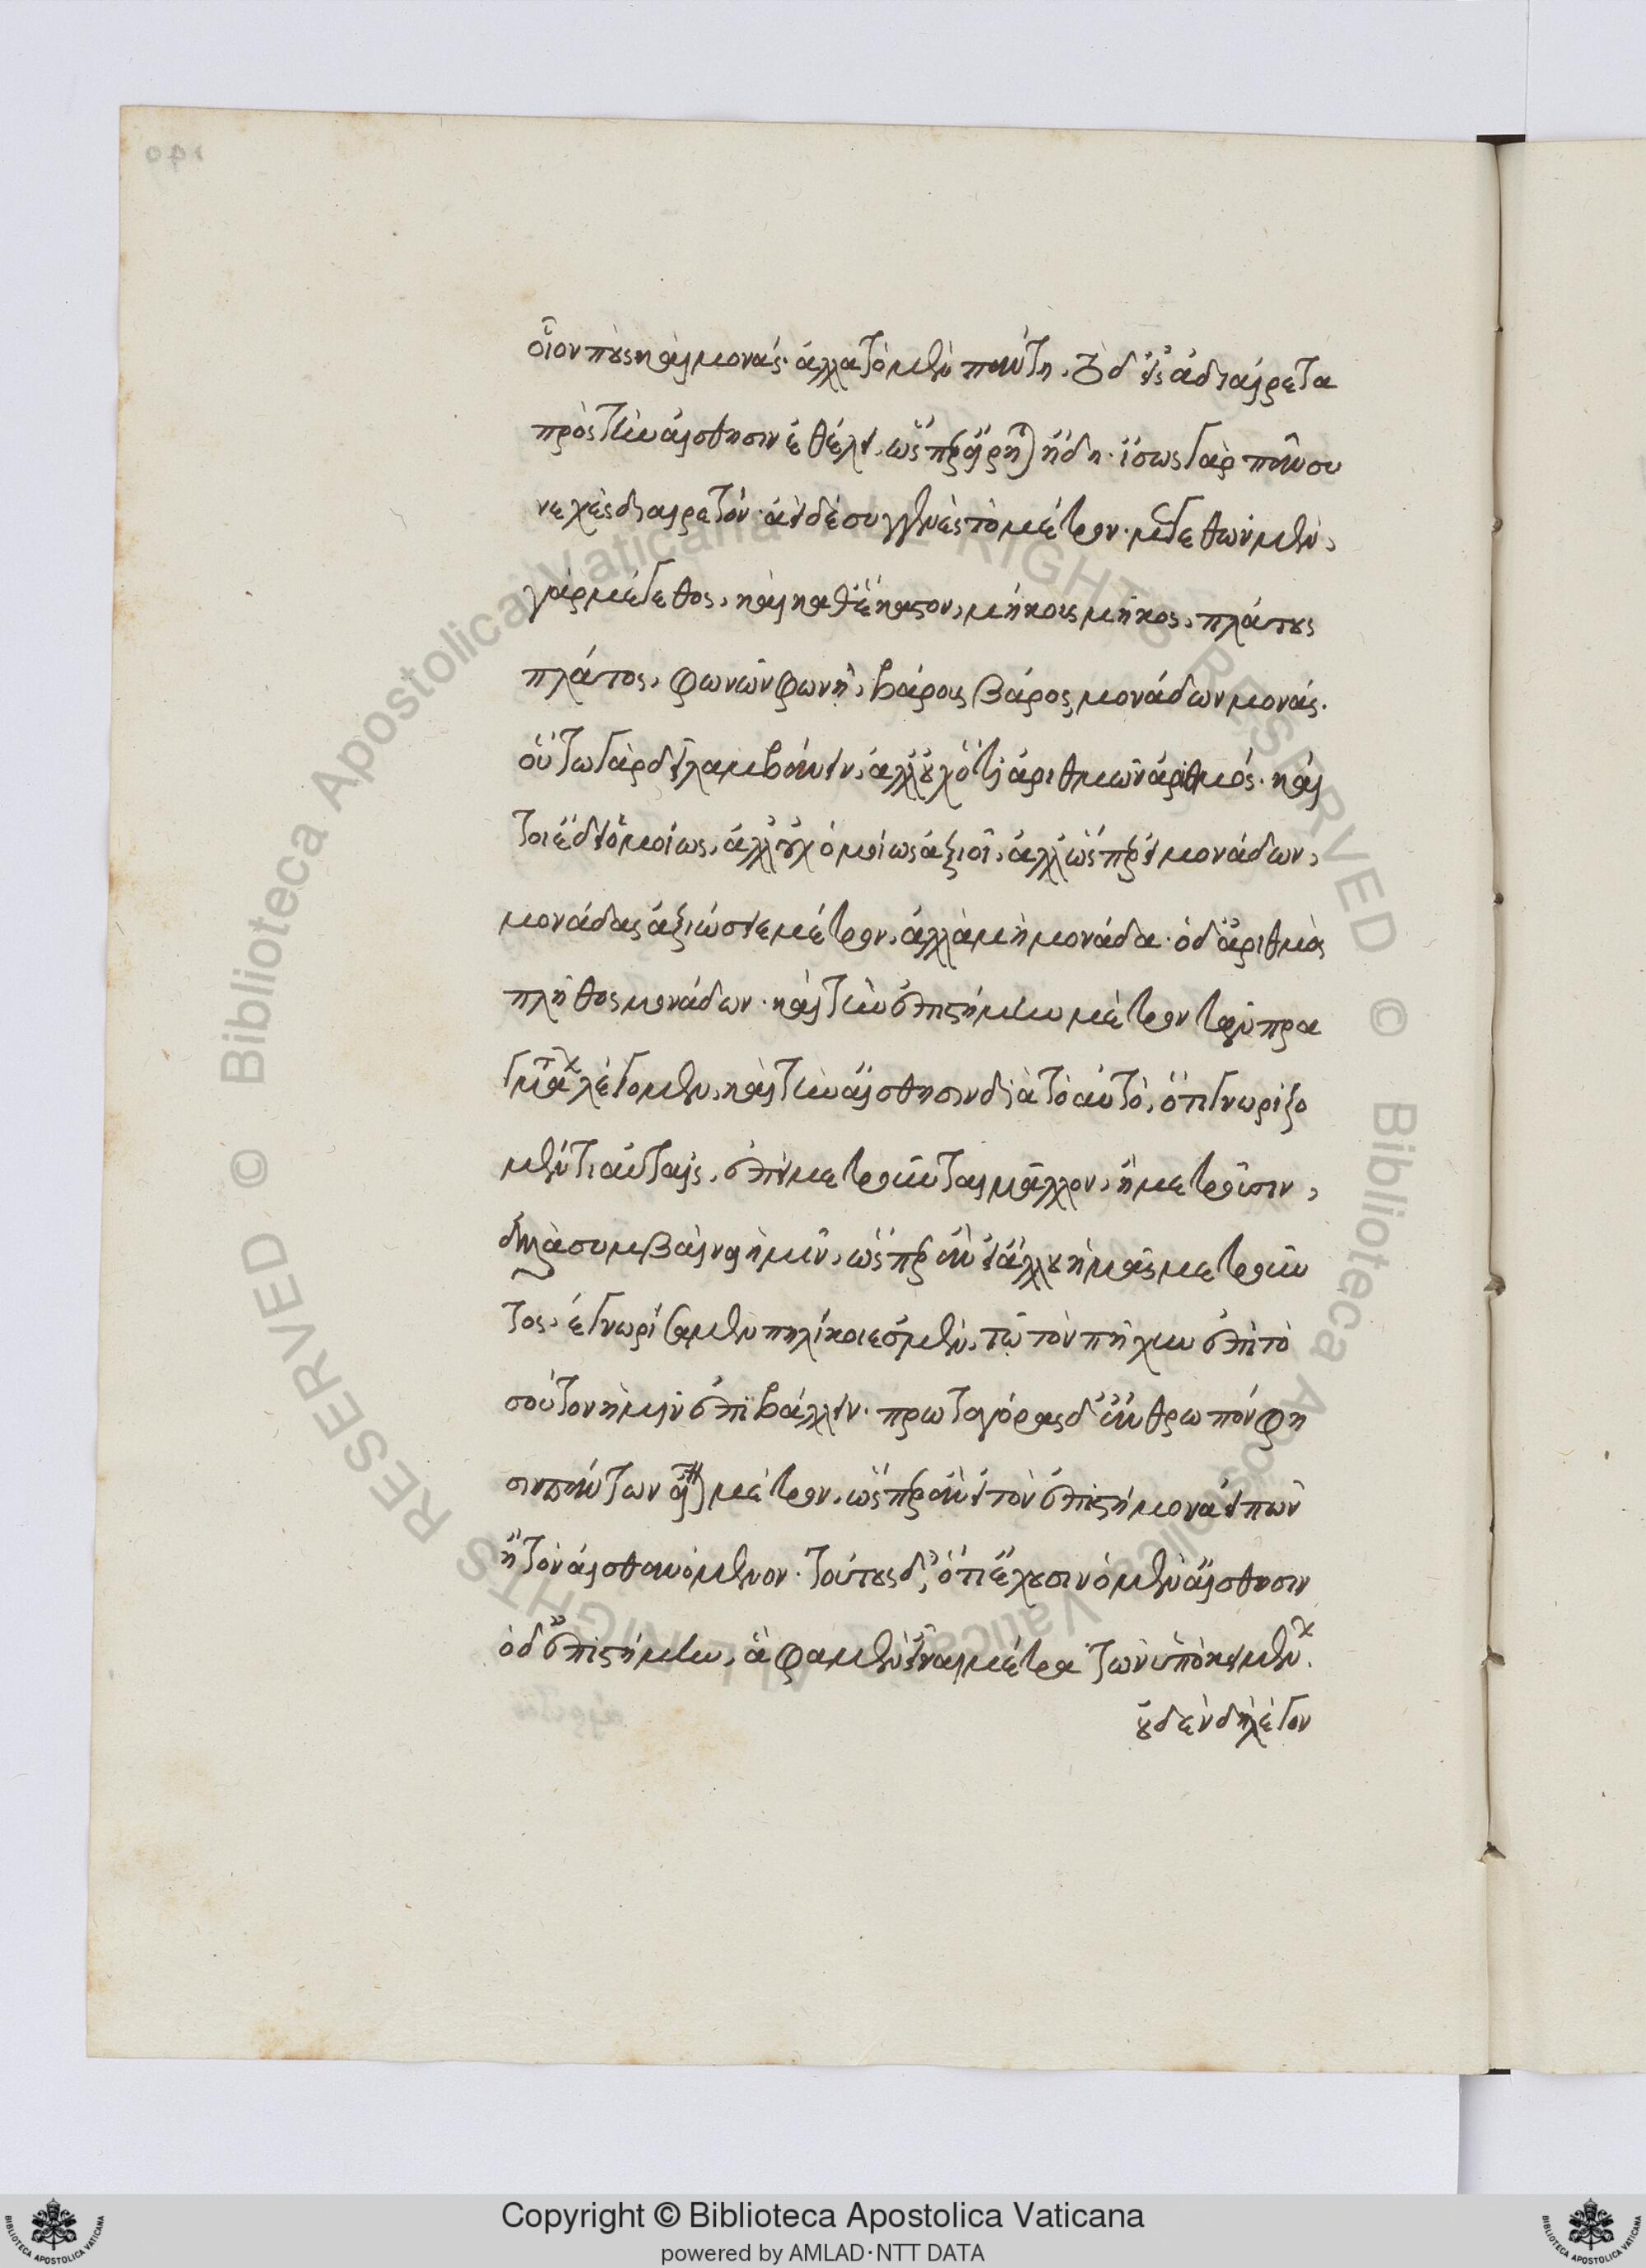 οἷον ποὺς καὶ μονάς. ἀλλὰ τὸ μὲν πάντη. τὸ δ' εἰς ἀδιαίρετα
πρὸς τὴν αἴσθησιν ἐθέλει, ὥσπερ εἴρηται ἤδη. ἴσως γὰρ πᾶν συ
νεχὲς διαιρετόν. ἀεὶ δὲ συγγενὲς τὸ μέτρον. μεγεθῶν μὲν,
γὰρ μέγεθος, καὶ καθ' ἕκαστον, μήκους μῆκος, πλάτους
πλάτος, φωνῶν φωνή, βάρους βάρος μονάδων μονάς.
οὕτω γὰρ δεῖ λαμβάνειν, ἀλλ' οὐχ ὅτι ἀριθμῶν ἀριθμός. καί
τοι ἔδει ὁμοίως, ἀλλ' οὐχ ὁμοίως ἀξιοῖ, ἀλλ' ὥσπερ εἰ μονάδων,
μονάδας ἀξιώσειε μέτρον, ἀλλὰ μὴ μονάδα. ὁ δ' ἀριθμὸς
πλῆθος μονάδων. καὶ τὴν ἐπιστήμην μέτρον τῶν πρα
γμάτων λέγομεν, καὶ τὴν αἴσθησιν διὰ τὸ αὐτὸ, ὅτι γνωρίζο
μέν τι αὐταῖς, ἐπεὶ μετροῦνται μᾶλλον, ἢ μετροῦσιν,
ἀλλὰ συμβαίνει ἡμῖν, ὥσπερ ἂν εἰ ἄλλου ἡμᾶς μετροῦν
τος, ἐγνωρίσαμεν πηλίκοι ἐσμὲν, τῷ τὸν πῆχυν ἐπὶ το
σοῦτον ἡμῶν ἐπιβάλλειν. πρωταγόρας δ' ἄνθρωπόν φη
σιν πάντων εἶναι μέτρον, ὥσπερ ἂν εἰ τὸν ἐπιστήμονα εἰπὼν
ἢ τὸν αἰσθανόμενον. τούτους δ', ὅτι ἔχουσιν ὁ μὲν αἴσθησιν
ὁ δ' ἐπιστήμην, ἅ φαμεν εἶναι μέτρα τῶν ὑποκειμένων.
οὐδὲν δὴ λέγον